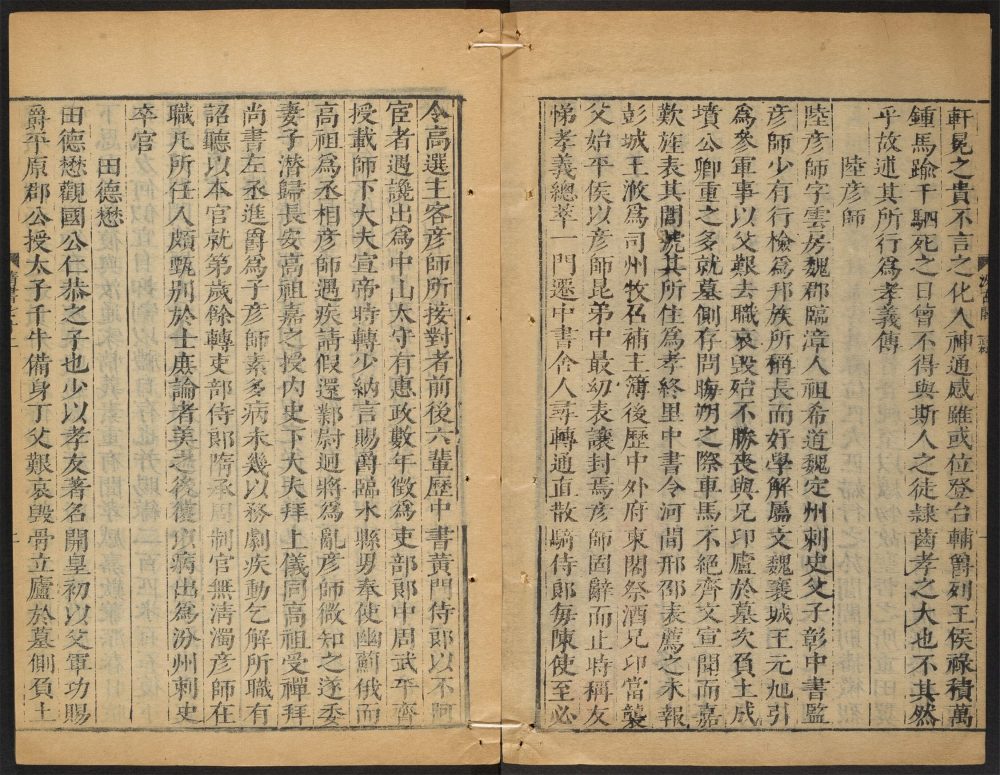 軒冕之貴不言之化人神通感雖或位登台輔爵列王侯祿積萬
鍾馬踰千駟死之日曾不得與斯人之徒隷齒孝之大也不其然
乎故述其所行爲孝義傳
陸彥師
陸彥師字雲房魏郡臨漳人祖希道魏定州刺史父子彰中書監
彥師少有行檢爲邦族所稱長而好學解屬文魏襄城王元旭引
爲參軍事以父艱去職哀毀殆不勝喪與兄卬廬於墓次負土成
墳公卿重之多就墓側存問晦朔之際車馬不絕齊文宣聞而嘉
歎旌表其閭號其所住爲孝終里中書令河間邢邵表薦之未報
彭城王浟爲司州牧召補主簿後歷中外府東閤祭酒兄卬當襲
父始平侯以彥師昆弟中最幼表讓封焉彥師固辭而止時稱友
悌孝義總萃一門遷中書舍人尋轉通直散騎侍郎每陳使至必
令高選主客彥師所接對者前後六輩歷中書黃門侍郎以不阿
宦者遇讒出爲中山太守有惠政數年徵爲吏部郎中周武平齊
授載師下大夫宣帝時轉少納言賜爵臨水縣男奉使幽薊俄而
高祖爲丞相彥師遇疾請假還鄴尉迥將爲亂彥師微知之遂委
妻子潛歸長安高祖嘉之授內史下大夫拜上儀同高祖受禪拜
尚書左丞進爵爲子彥師素多病未幾以務劇疾動乞解所職有
詔聽以本官就第歲餘轉吏部侍郎隋承周制官無清濁彥師在
職凡所任人頗甄別於士庶論者美之後復以病出爲汾州刺史
卒官
田德懋
田德懋觀國公仁恭之子也少以孝友著名開皇初以父軍功賜
爵平原郡公授太子千牛備身丁父艱哀毀骨立廬於墓側負土